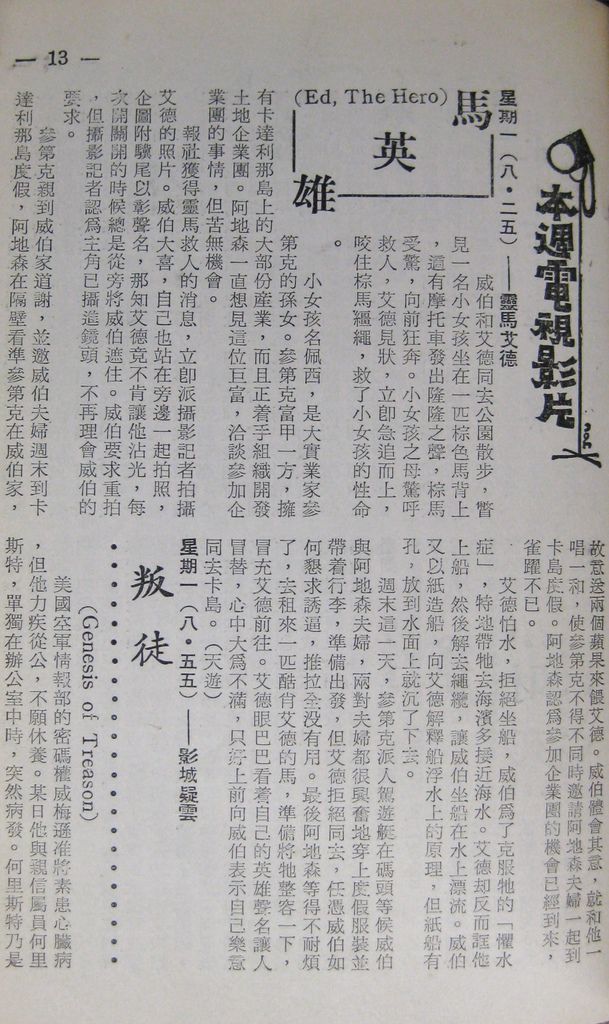 — 13 —
本週電視影片
星期一(八·二五)——靈馬艾德
馬英雄
(Ed, The Hero)
威伯和艾德同去公園散步,瞥
見一名小女孩坐在一匹棕色馬背上
,這有摩托車發出隆隆之聲,棕馬
受驚,向前狂奔。小女孩之母驚呼
救人,艾德見狀,立即急追而上,
咬住棕馬繮繩,救了小女孩的性命
。
小女孩名佩西,是大實業家參
第克的孫女。參第克富甲一方,擁
有卡達利那島上的大部份產業,而且正着手組織開發
土地企業團。阿地森一直想見這位巨富,洽談參加企
業團的事情,但苦無機會。
報社獲得靈馬救人的消息,立卽派攝影記者拍攝
艾德的照片。威伯大喜,自己也站在旁邊一起拍照,
企圖附驥尾以彰聲名,那知艾德竟不肯讓他沾光,每
次開關開的時候總是從旁將威伯遮住。威伯要求重拍
,但攝影記者認爲主角已攝進鏡頭,不再理會威伯的
要求。
參第克親到威伯家道謝,並邀威伯夫婦週末到卡
達利那島度假,阿地森在隔壁看準參第克在威伯家,
故意送兩個蘋果來餵艾德。威伯體會其意,就和他一
唱一和,使參第克不得不同時邀請阿地森夫婦一起到
卡島度假。阿地森認爲參加企業團的機會已經到來,
雀躍不已。
艾德怕水,拒絕坐船,威伯爲了克服牠的「懼水
症」,特地帶牠去海濱多接近海水。艾德却反而誆他
上船,然後解去繩纜,讓威伯坐船在水上漂流。威伯
又以紙造船,向艾德解釋船浮水上的原理,但紙船有
孔,放到水面上就沉了下去。
週末這一天,參第克派人駕遊艇在碼頭等候威伯
與阿地森夫婦,兩對夫婦都很興奮地穿上度假服裝並
帶着行李,準備出發,但艾德拒絕同去,任憑威伯如
何懇求誘逼,推拉全没有用。最後阿地森等得不耐煩
了,去租來一匹酷肖艾德的馬,準備將牠整容一下,
冒充艾德前往。艾德眼巴巴看着自己的英雄聲名讓人
冒替,心中大爲不滿,只好上前向威伯表示自己樂意
同去卡島。(天遊)
星期一(八·五五)——影城疑雲
叛徒
(Genesis of Treason)
美國空軍情報部的密碼權威梅遜准將素患心臟病
,但他力疾從公,不願休養。某日他與親信屬員何里
斯特,單獨在辦公室中時,突然病發。何里斯特乃是